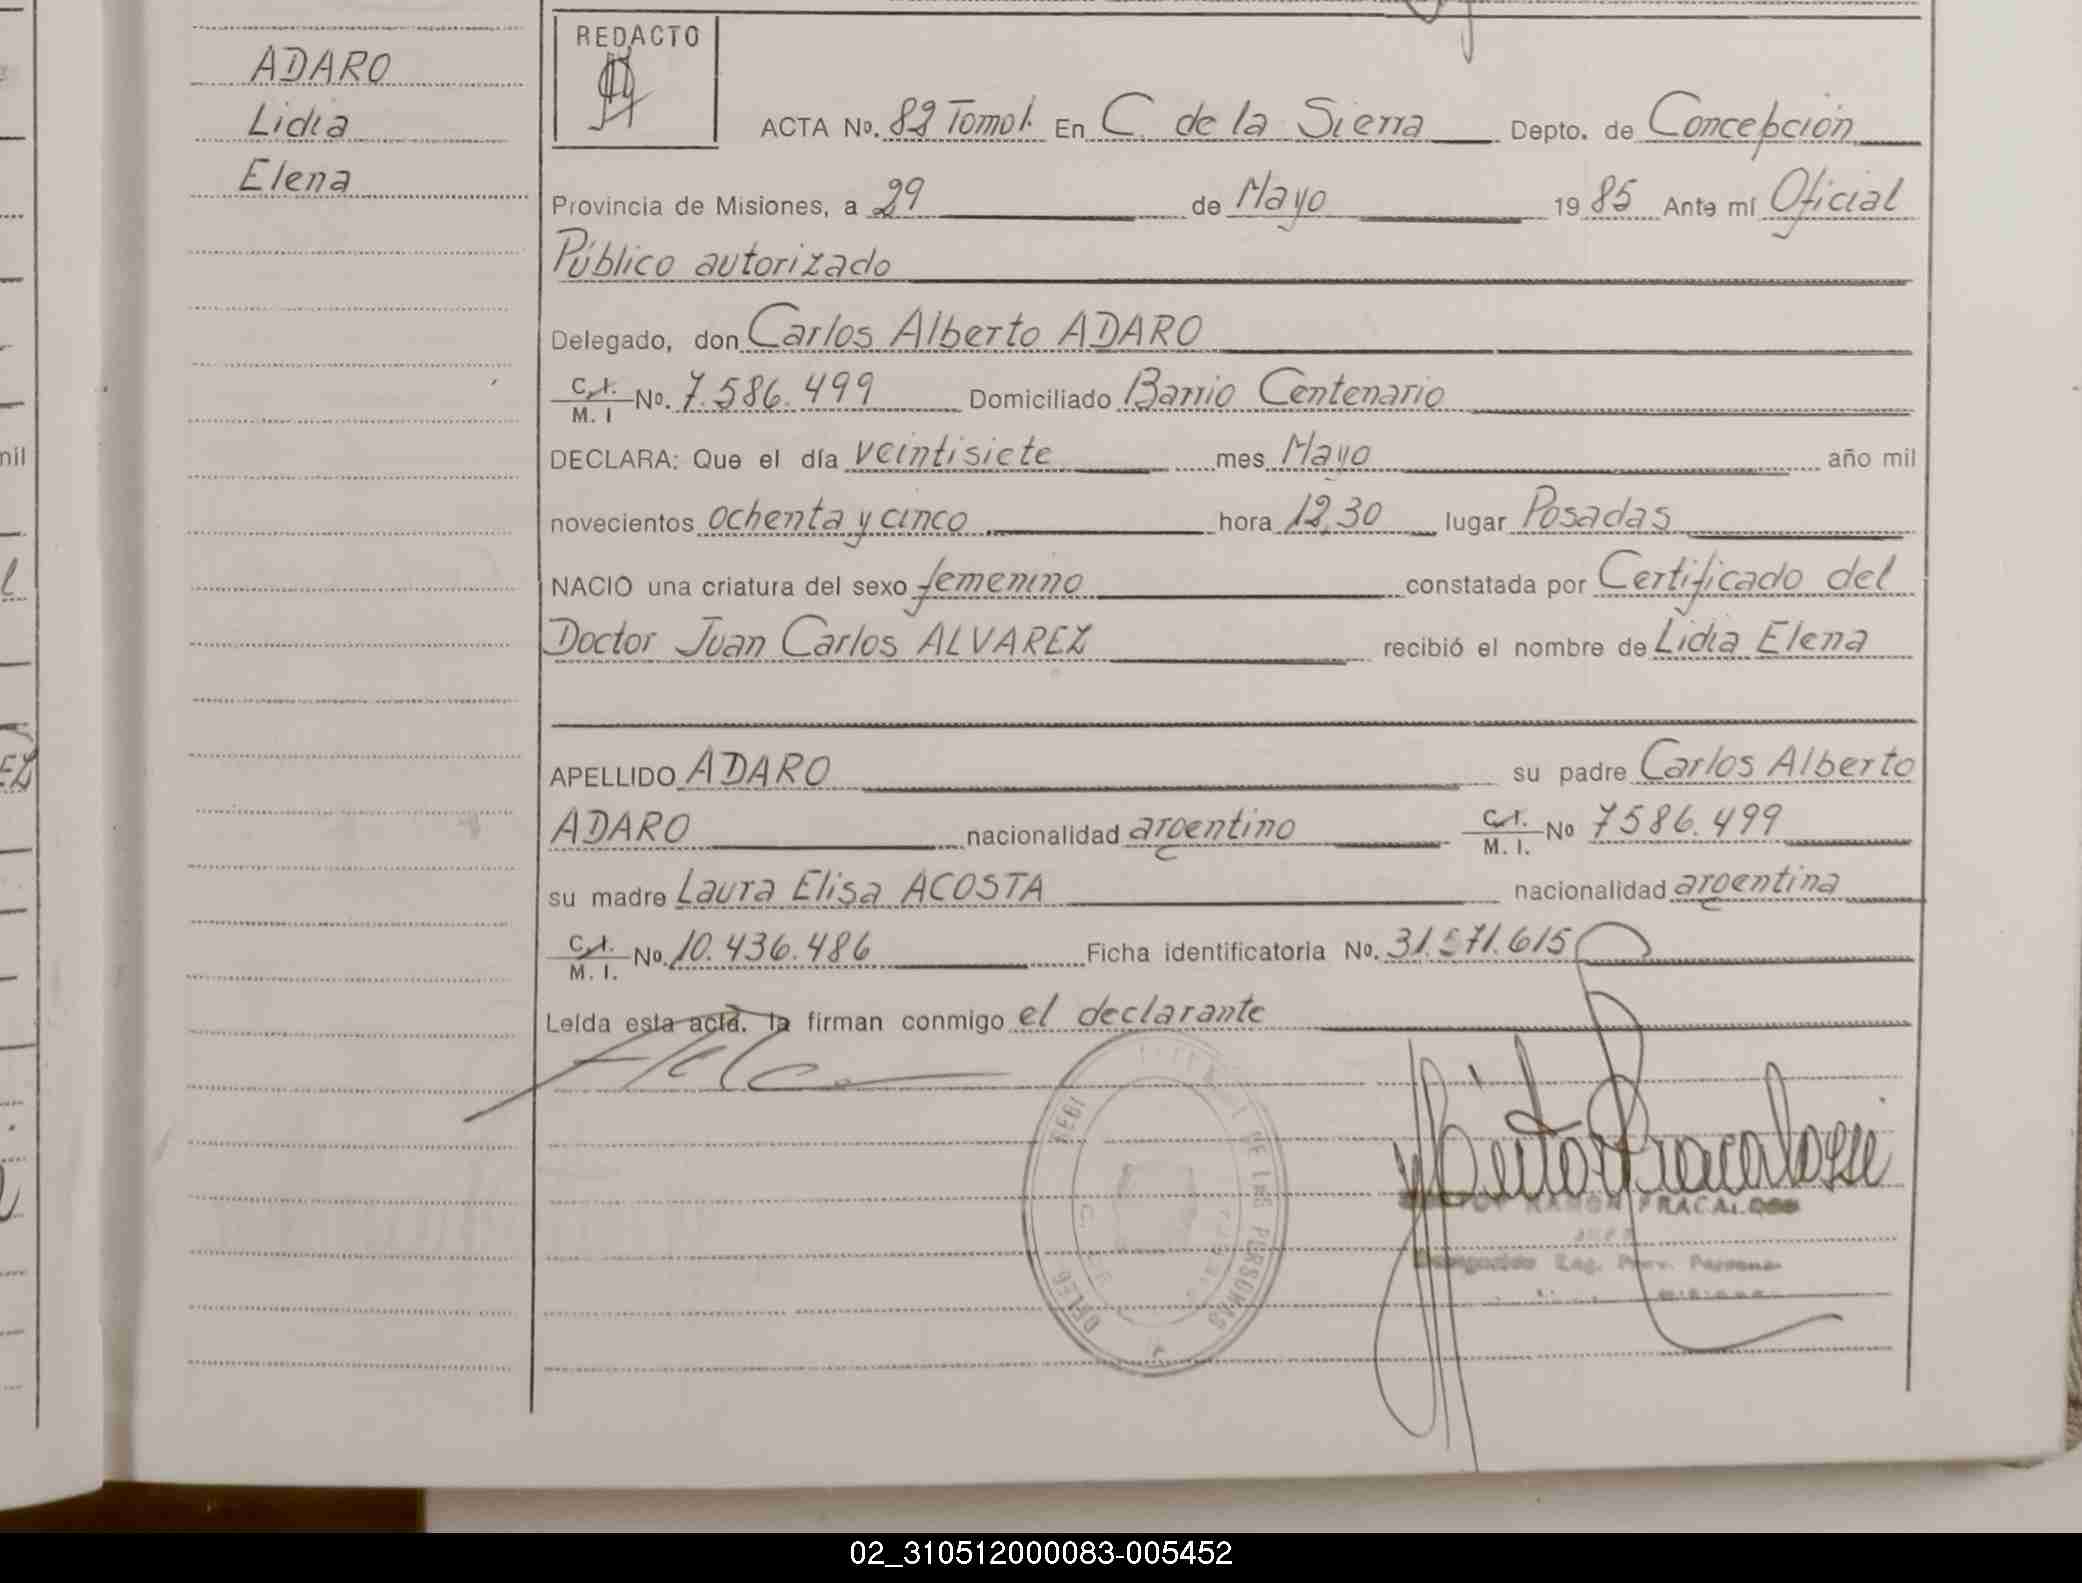 ADARO
Lidia
Elena
REDACTO
ACTA No. 82 Tomo 1. En C. de la Sierra Depto. de Concepción
Provincia de Misiones, a 29 de Mayo 1985 Ante mí Oficial
Público autorizado
Delegado, don Carlos Alberto ADARO
C. I.
M. I No. 7.586.499 Domiciliado Barrio Centenario
DECLARA: Que el día veintisiete mes Mayo año mil
novecientos ochenta y cinco hora 12,30 lugar Posadas
NACIO una criatura del sexo femenino constatada por Certificado del
Doctor Juan Carlos ALVAREZ recibió el nombre de Lidia Elena
APELLIDO ADARO su padre Carlos Alberto
ADARO nacionalidad argentino C. I. M. I. No 7586.499
su madre Laura Elisa ACOSTA nacionalidad argentina
C. I.
M. I. No. 10.436.486 Ficha identificatoria No. 31.571.615
Leída esta acta, la firman conmigo el declarante
DE LAS PERSONAS
RAMON FRACALOSSI
02_310512000083-005452